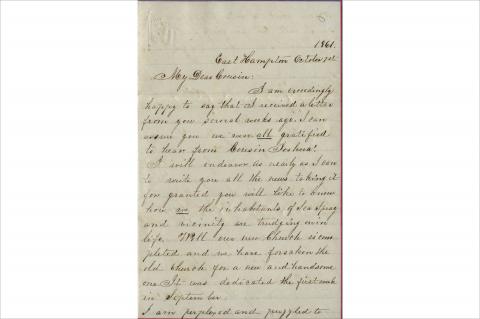 1861.
East Hampton October 1st
My Dear Cousin:
I am exceedingly
happy to say that I received a letter
from you several weeks ago. I can
assure you we were all gratified
to hear from Cousin Joshua!
I will endeavor as nearly as I can
to write you all the news taking it
for granted you will like to know
how we the inhabitants of Sea Spray
and vicinity are trudging on in
life. Well our new Church is com
pleted and we have forsaken the
old Church for a new and handsome
one It was dedicated the first week
in September.
I am perplexed and puzzled to